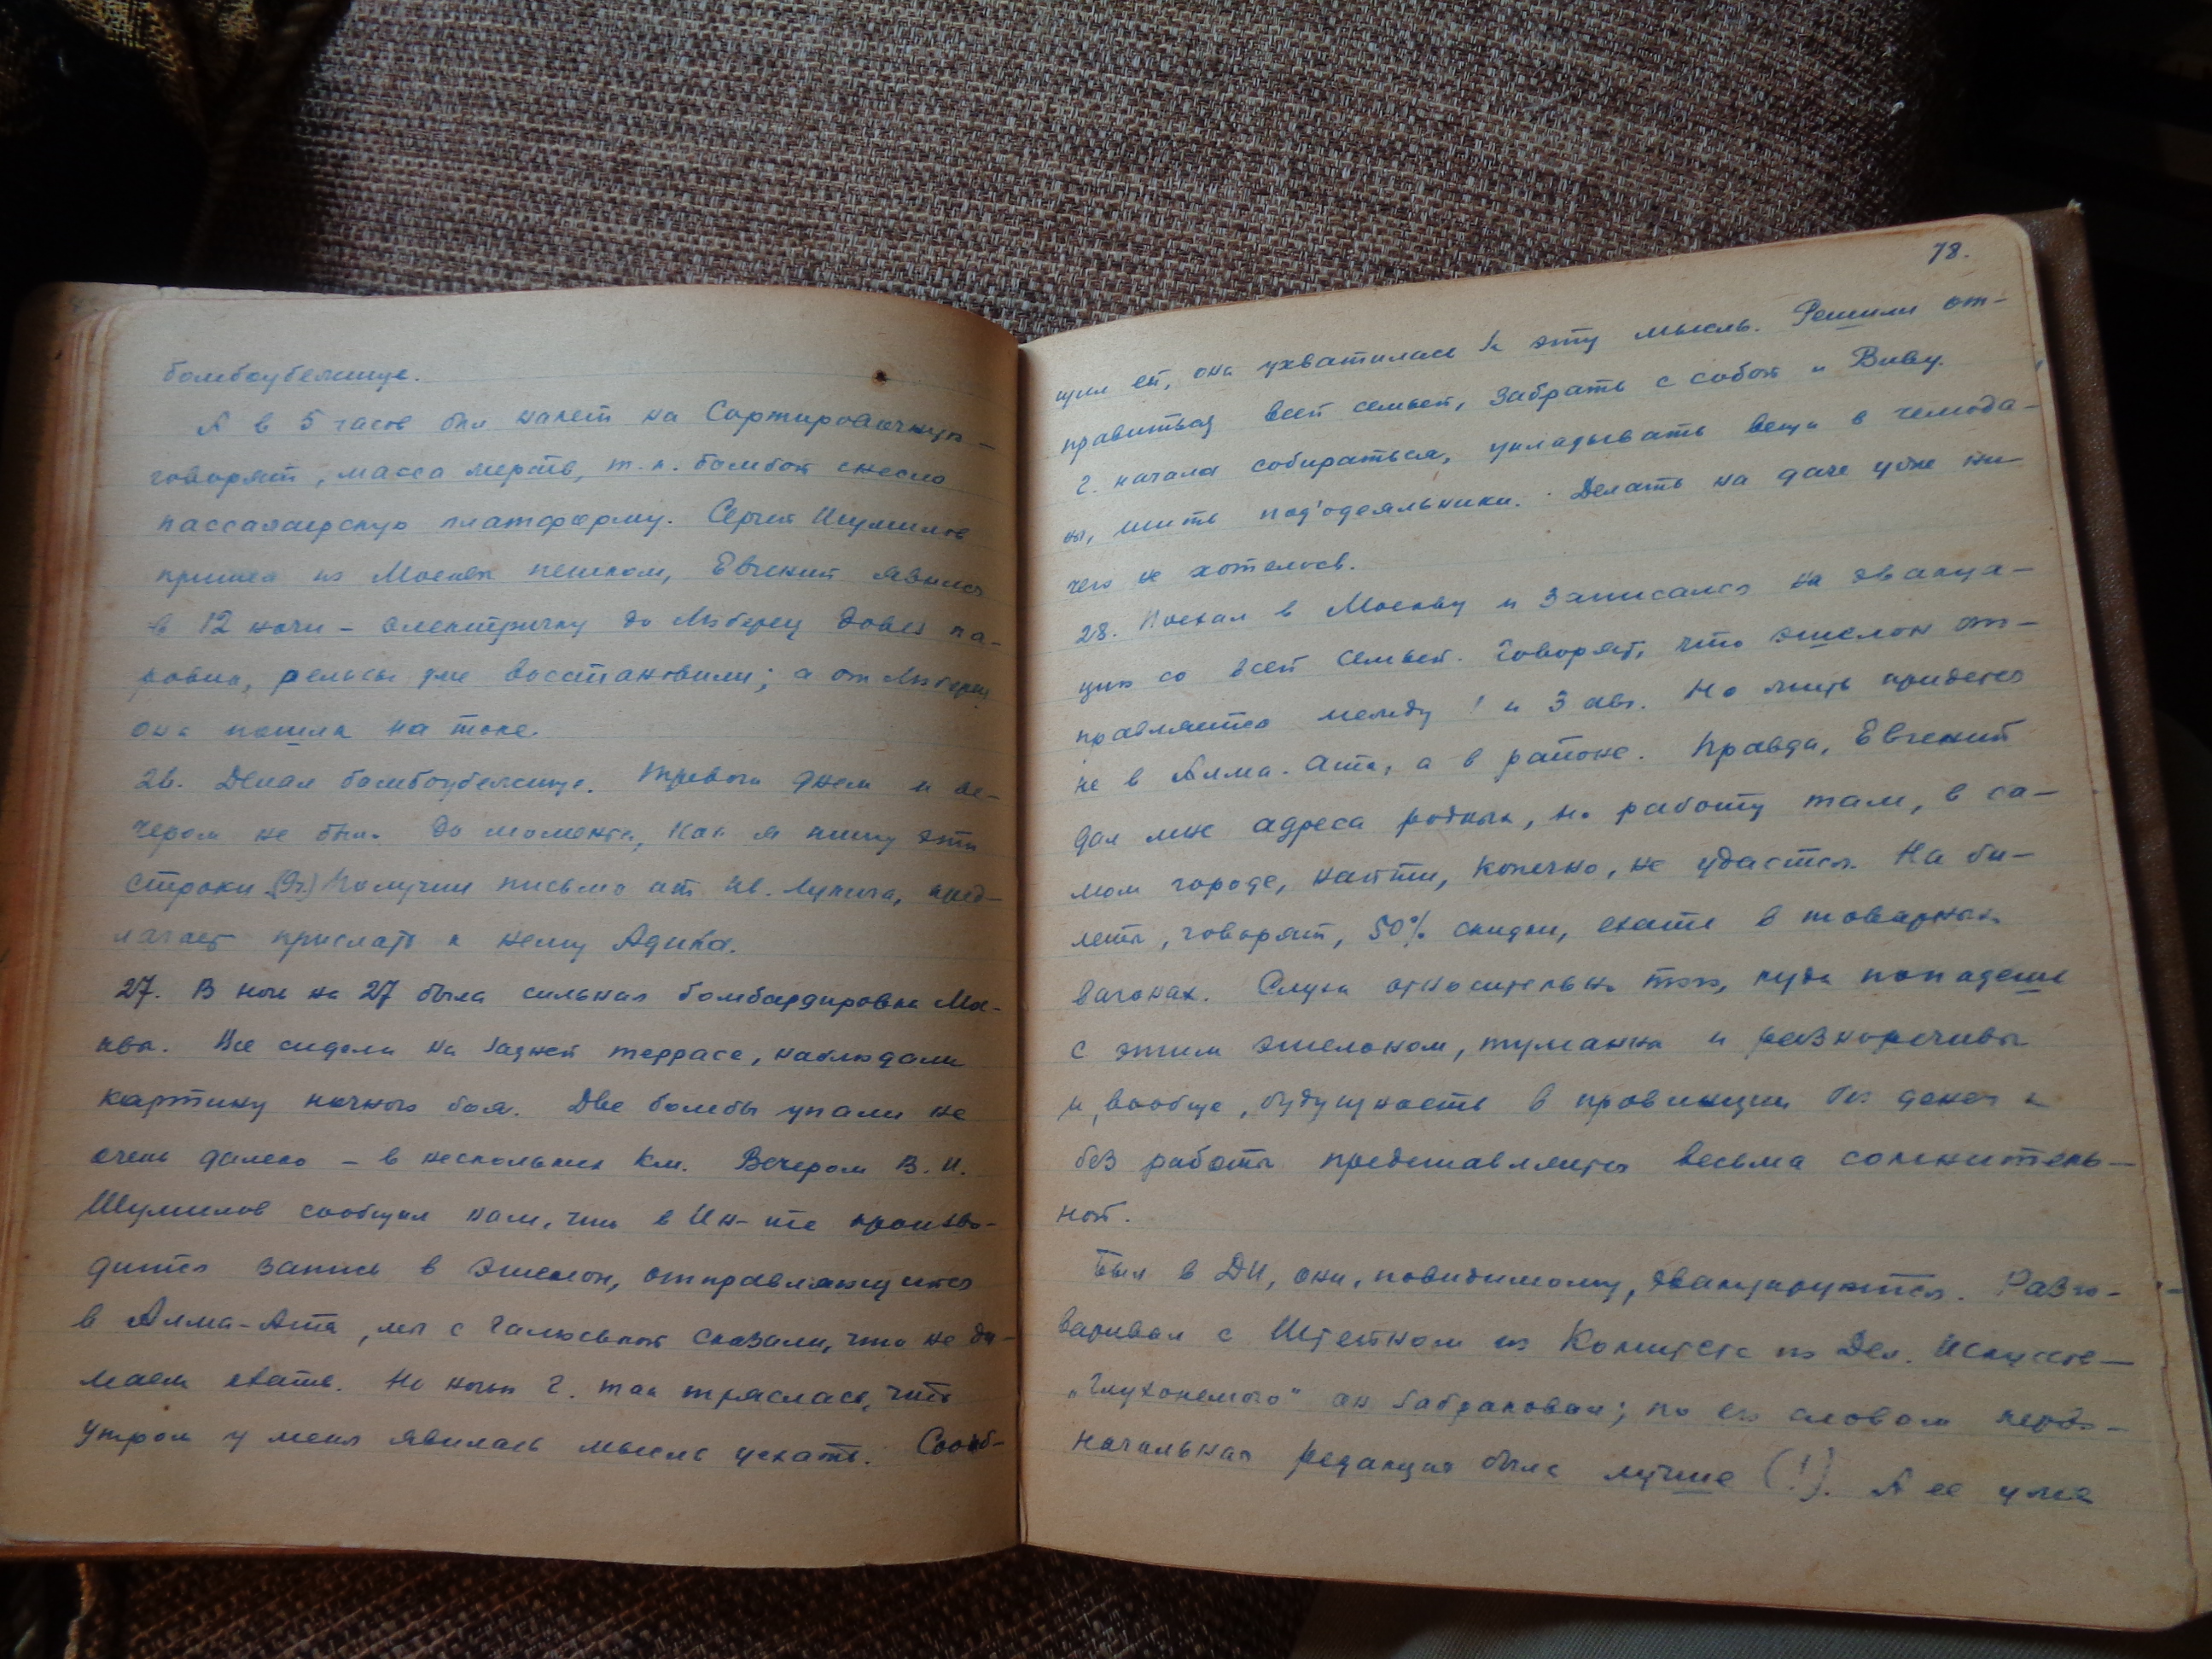 бомбоубежище.
А в 5 часов был налет на Сортировочную –
говорят, масса жертв, т.к. бомбой снесло
пассажирскую платформу. Сергей Шумилов
пришел из Москвы пешком, Евгений явился
в 12 ночи – электричку до Люберец довез па-
ровик, рельсы уже восстановили; а от Люберец
она пошла на токе.
26. Делал бомбоубежище. Тревоги днем и ве-
чером не было до момента, как я пишу эти
строки (9ч.) Получил письмо от Ив. Лукича, пред-
лагает прислать к нему Адика.
27. В ночь на 27 была сильная бомбардировка Мос-
квы. Все сидели на задней террасе, наблюдали
картину ночного боя. Две бомбы упали не
очень далеко – в нескольких км. Вечером В. И.
Шумилов сообщил нам, что в Ин-те произво-
дится запись в эшелон, отправляющийся
в Алма-Ата, мы с Галюськой сказали, что не ду-
маем ехать. Но ночью Г. так тряслась, что
утром у меня явилась мысль уехать. Сооб-
78.
щил ей, она ухватилась за эту мысль. Решили от-
правиться всей семьей, забрать с собой и Виву.
Г. начала собираться, укладывать вещи в чемода-
ны, шить под'одеяльники. Делать на даче уже ни-
чего не хотелось.
28. Поехал в Москву и записался на эвакуа-
цию со всей семьей. Говорят, что эшелон от-
правляется между 1 и 3 авг. Но жить придется
не в Алма-Ата, а в районе. Правда, Евгений
дал мне адреса родных, но работу там, в са-
мом городе, найти, конечно, не удастся. На би-
леты, говорят, 50% скидки, ехать в товарных
вагонах. Слухи относительно того, куда попадешь
с этим эшелоном, туманны и разноречивы
и, вообще, будущность в провинции без денег и
без работы представляется весьма сомнитель-
ной.
Был в ДИ, они, повидимому, эвакуируются. Разго-
варивал с Штейном из Комитета по Дел. Искусств –
„Глухонемого" он забраковал; по его словам перво-
начальная редакция была лучше (!). А ее уже